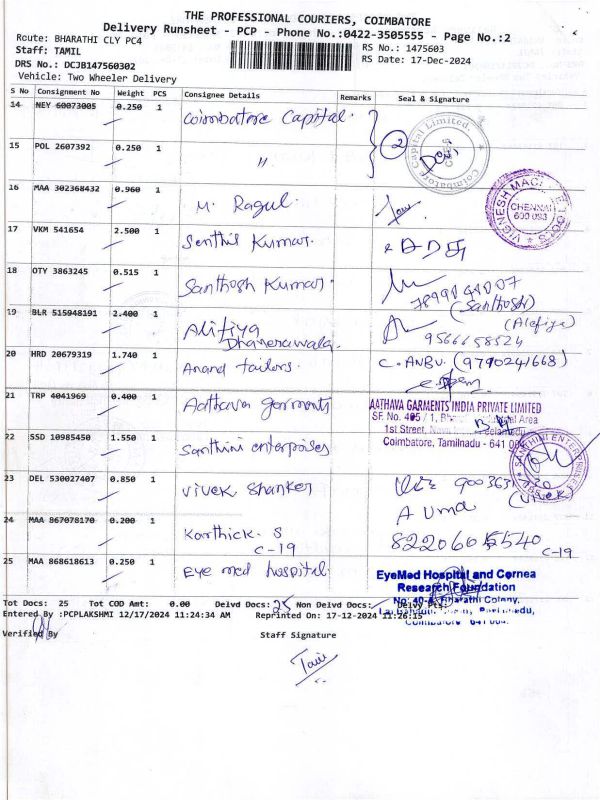 THE PROFESSIONAL COURIERS, COIMBATORE
Delivery Runsheet - PCP - Phone No.:0422-3505555 - Page No.:2
Route: BHARATHI CLY PC4
RS No.: 1475603
Staff: TAMIL
RS Date: 17-Dec-2024
DRS No.: DCJB147560302
Vehicle: Two Wheeler Delivery
S No Consignment No Weight PCS Consignee Details Remarks Seal & Signature
14 NEY 60073005 0.250 1 Coimbatore Capital.
15 POL 2607392 0.250 1 "
2
Capital Limited.
Coimbatore
16 MAA 302368432 0.960 1 M. Ragul.
VIGNESH
CHENNAI
600 083
17 VKM 541654 2.500 1 Senthil Kumar.
18 OTY 3863245 0.515 1 Santhosh Kumar.
(Santhosh)
19 BLR 515948191 2.400 1 Alifiya Dhanerawala.
(Alefiya)
9566658524
20 HRD 20679319 1.740 1 Anand tailors. C. ANBU. (9790241668)
21 TRP 4041969 0.400 1 Aathava garments
AATHAVA GARMENTS INDIA PRIVATE LIMITED
SF. No. 405 / 1, Area
1st Street,
Coimbatore, Tamilnadu - 641
22 SSD 10985450 1.550 1 Santhini enterprises
SANTHINI ENTERPRISES
23 DEL 530027407 0.850 1 Vivek Shanker
(Vivek)
A Uma
24 MAA 867078170 0.200 1 Karthick. S
C-19
C-19
25 MAA 868618613 0.250 1 Eye med hospital
EyeMed Hospital and Cornea
Research Foundation
No: 40-A, Bharathi Colony,
Tot Docs: 25 Tot COD Amt: 0.00 Delvd Docs: 25 Non Delvd Docs: Delvy Pts:
Entered By :PCPLAKSHMI 12/17/2024 11:24:34 AM Reprinted On: 17-12-2024 11:26:15
Coimbatore
Verified By
Staff Signature